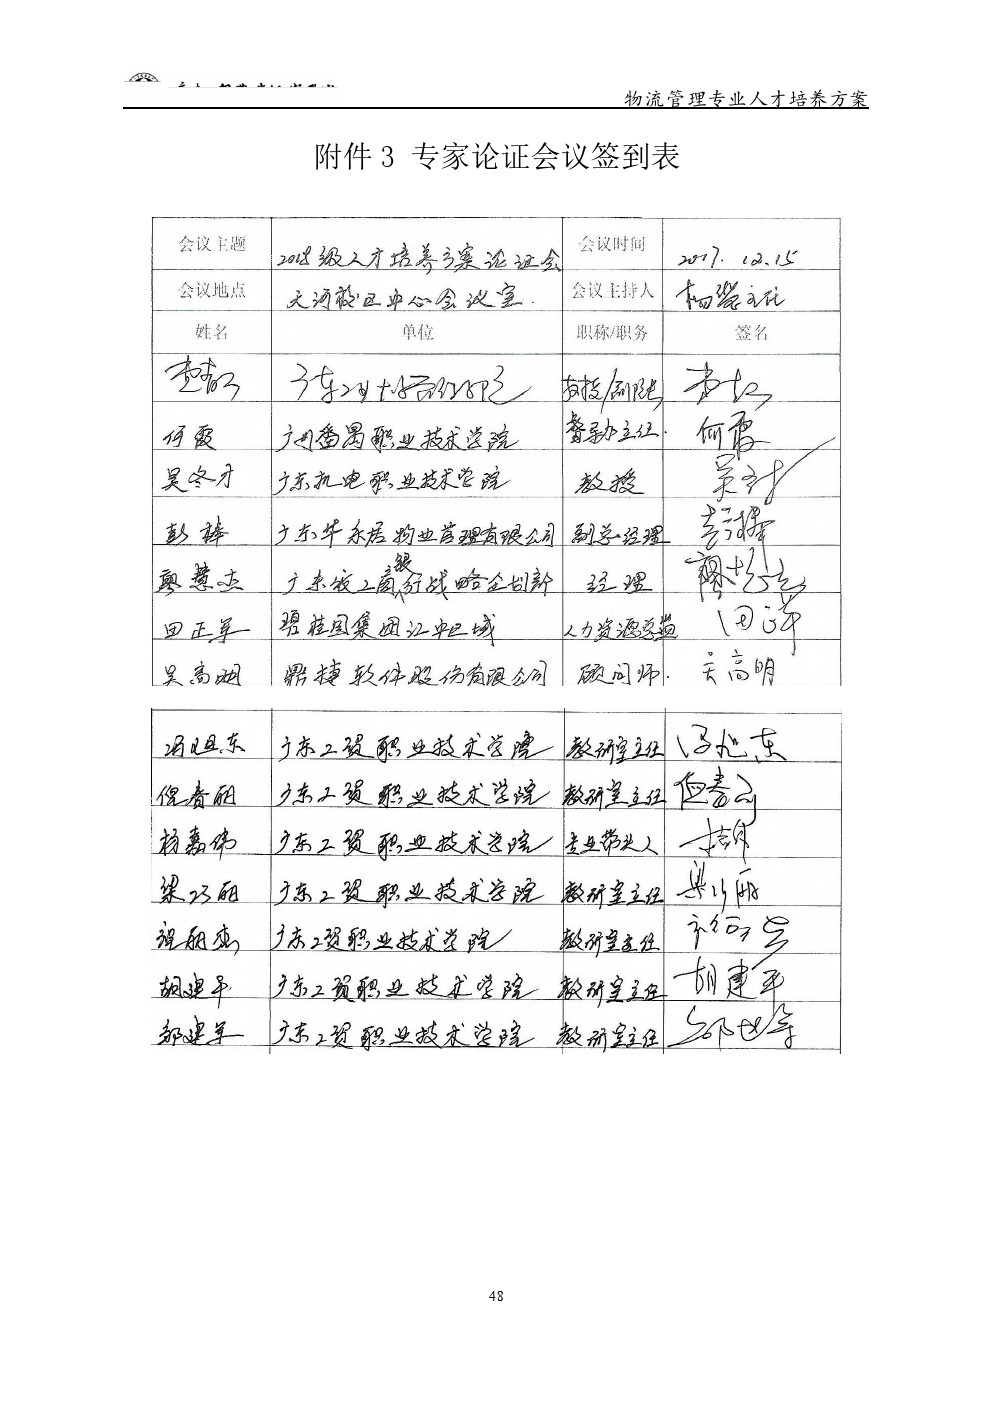 物流管理专业人才培养方案
附件 3 专家论证会议签到表
会议主题 2018级人才培养方案论证会 会议时间 2017.12.15
会议地点 天河校区中心会议室. 会议主持人 主任
姓名 单位 职称/职务 签名
教授/副院长
何霞 广州番禺职业技术学院 督导办主任. 何霞
吴冬才 广东机电职业技术学院 教授
彭梓 广东华永居物业管理有限公司 副总经理
廖慧杰 经理
田正军 碧桂园集团江中区域 人力资源总监
吴高明 鼎捷软件股份有限公司 顾问师. 吴高明
冯旭东 广东工贸职业技术学院 教研室主任 冯旭东
倪春丽 广东工贸职业技术学院 教研室主任 倪春丽
杨嘉伟 广东工贸职业技术学院 专业带头人
梁巧丽 广东工贸职业技术学院 教研室主任 梁巧丽
祝丽杰 广东工贸职业技术学院 教研室主任
胡建平 广东工贸职业技术学院 教研室主任 胡建平
邹建军 广东工贸职业技术学院 教研室主任 邹建军
48